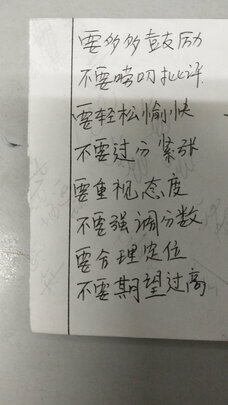 要多多鼓励
不要唠叨批评
要轻松愉快
不要过分紧张
要重视态度
不要强调分数
要合理定位
不要期望过高